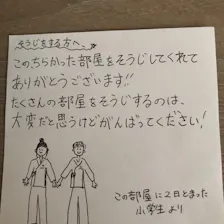 そうじをする方へ。
この、ちらかった部屋をそうじしてくれて
ありがとうございます!!
たくさんの部屋をそうじするのは、
大変だと思うけどがんばってください!
この部屋に2日とまった
小学生より